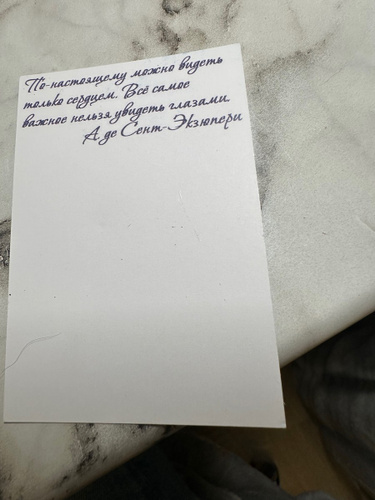 По-настоящему можно видеть
только сердцем. Всё самое
важное нельзя увидеть глазами.
А де Сент-Экзюпери